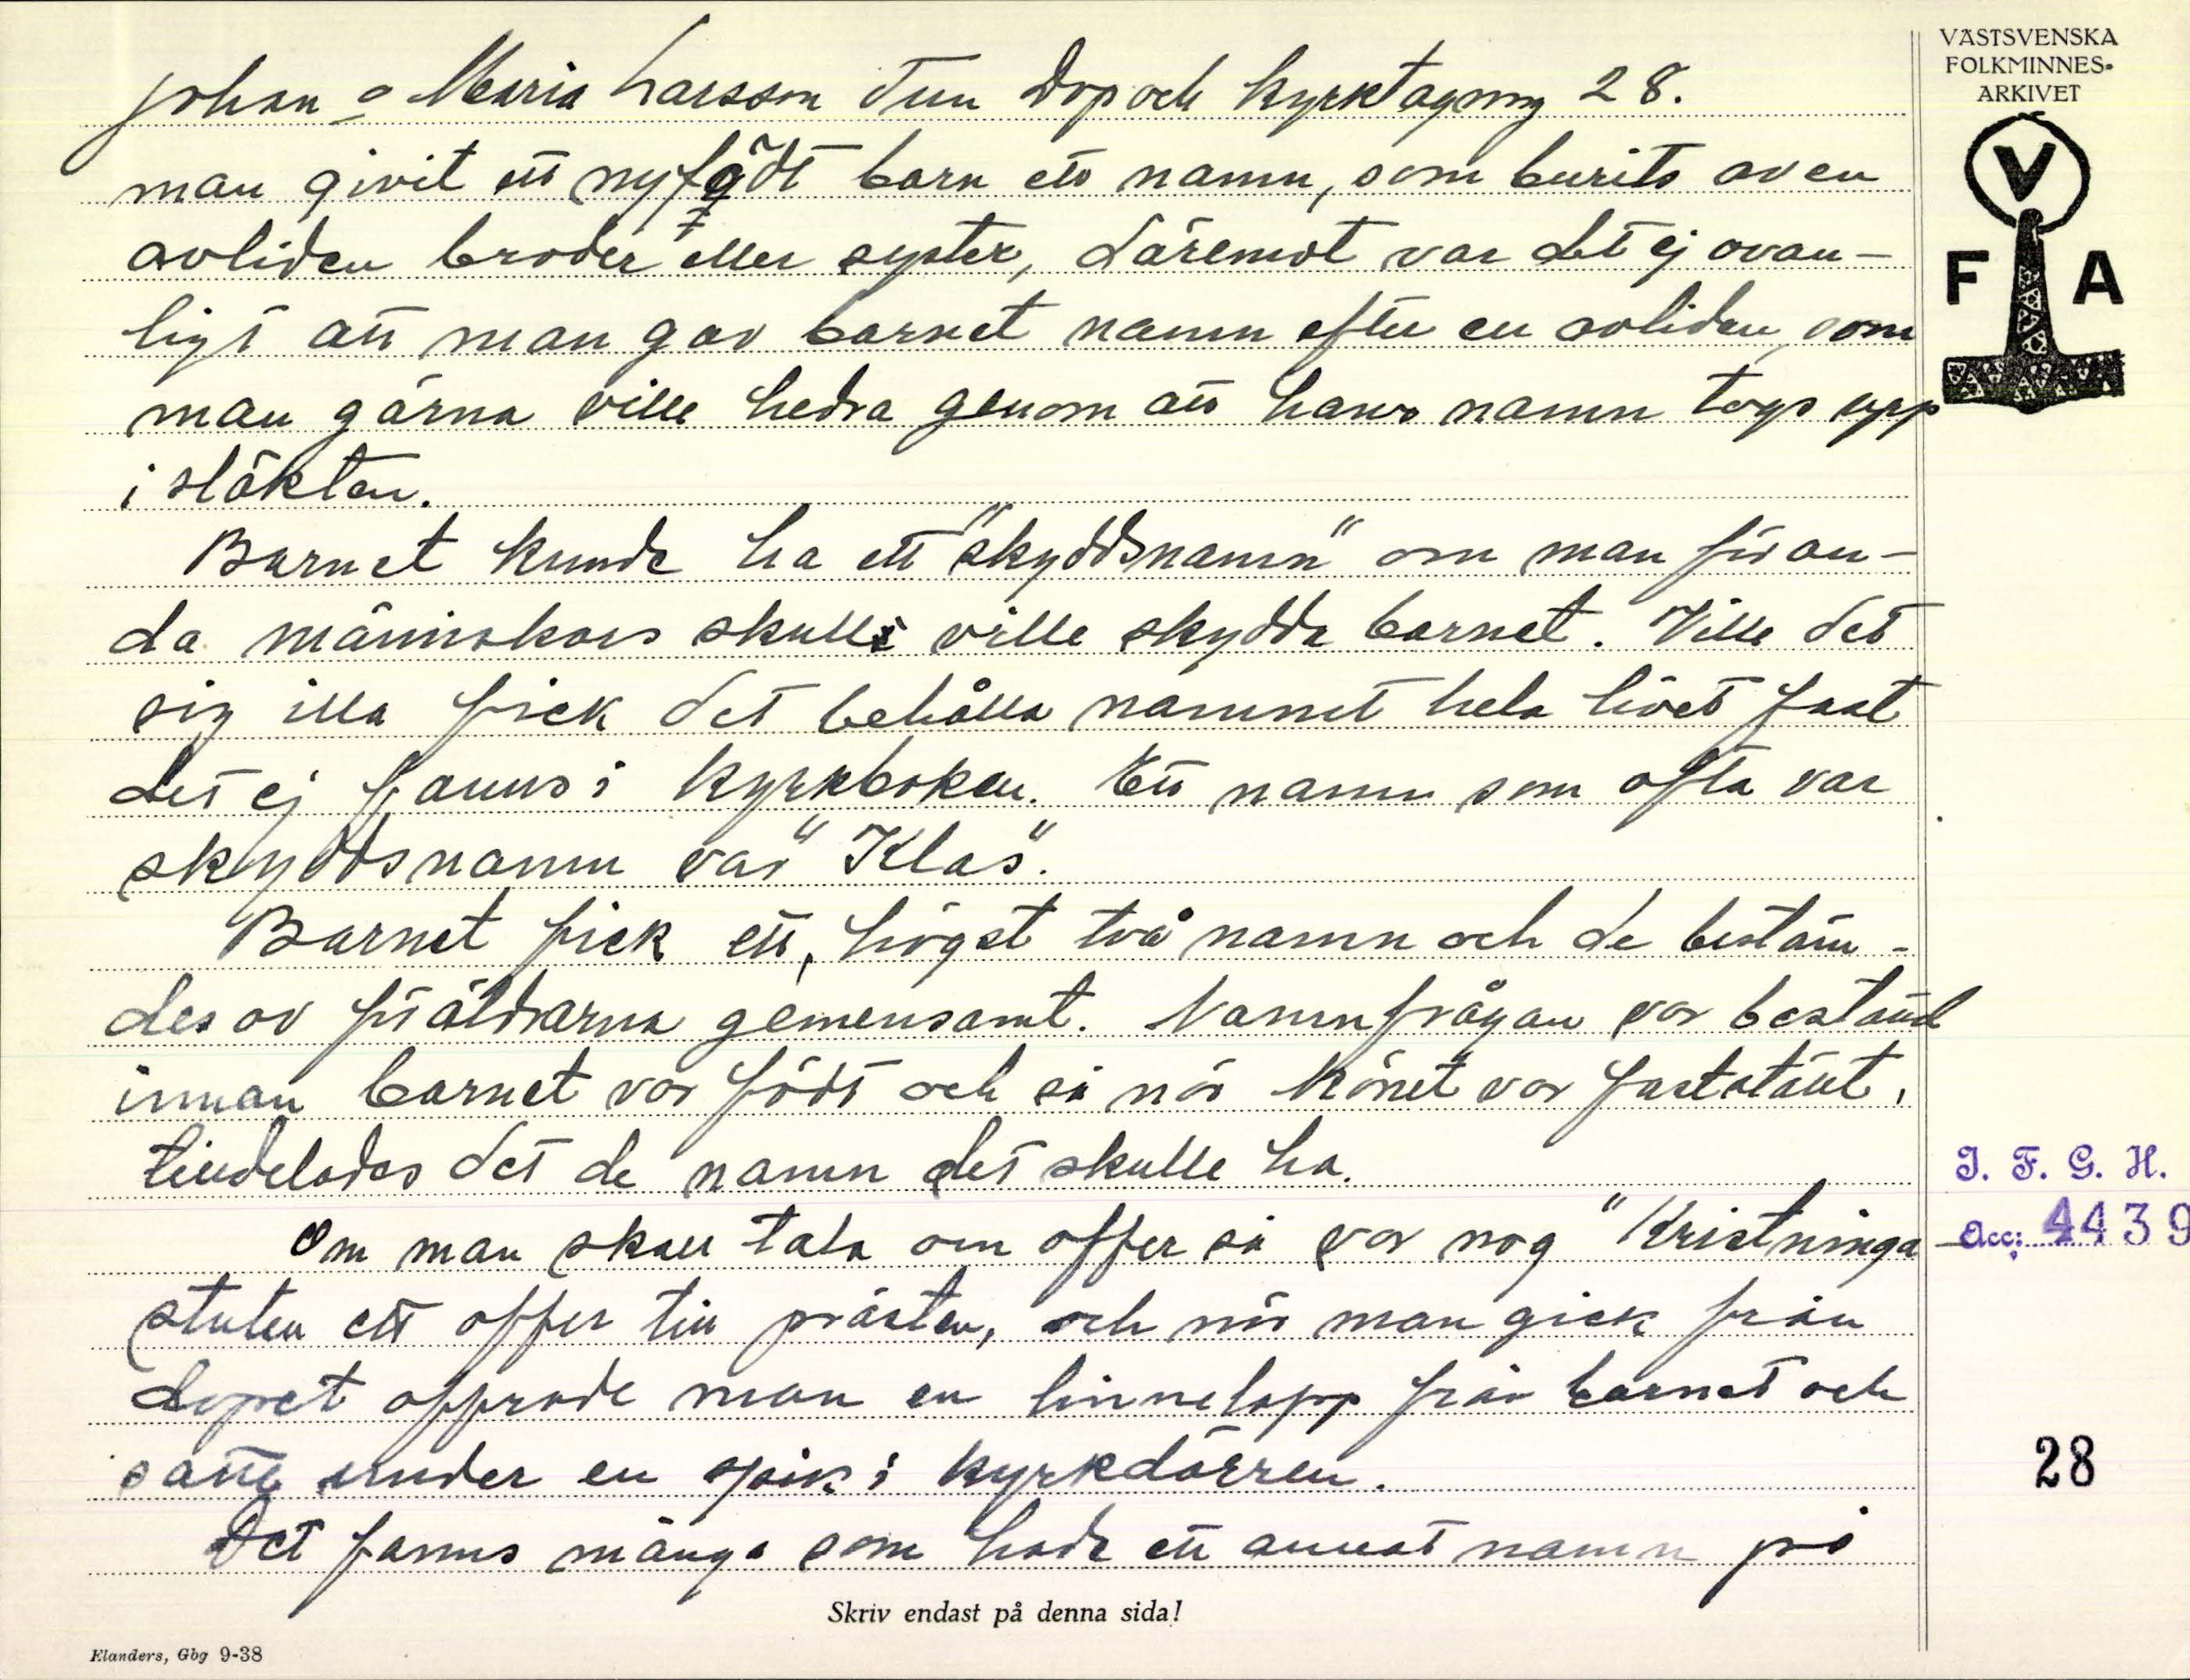 Johan o Maria Larsson Tun Dop och kyrktagning 28.
man givit ett nyfödt barn ett namn, som burits av en
avliden broder eller syster, däremot var det ej ovan-
ligt att man gav barnet namn efter en avliden, som
man gärna ville hedra genom att hans namn togs upp
i släkten.
Barnet kunde ha ett "skyddsnamn" om man för on-
da människors skull ville skydda barnet. Ville det
sig illa fick det behålla namnet hela livet fast
det ej fanns i kyrkboken. Ett namn som ofta var
skyddsnamn var "Klas".
Barnet fick ett, högst två namn och de bestäm-
des av föräldrarna gemensamt. Namnfrågan var bestämd
innan barnet var född och så när könet var fastställt,
tilldelades det de namn det skulle ha.
Om man skall tala om offer så var nog "Kristninga
stuten ett offer till prästen, och när man gick från
dopet offrade man en linnelapp från barnet och
satte under en spik i kyrkdörren.
Det fanns många som hade ett annat namn på
Skriv endast på denna sida!
Elanders, Gbg 9-38
VÄSTSVENSKA
FOLKMINNES-
ARKIVET
V
F A
I. F. G. H.
Acc: 4439
28